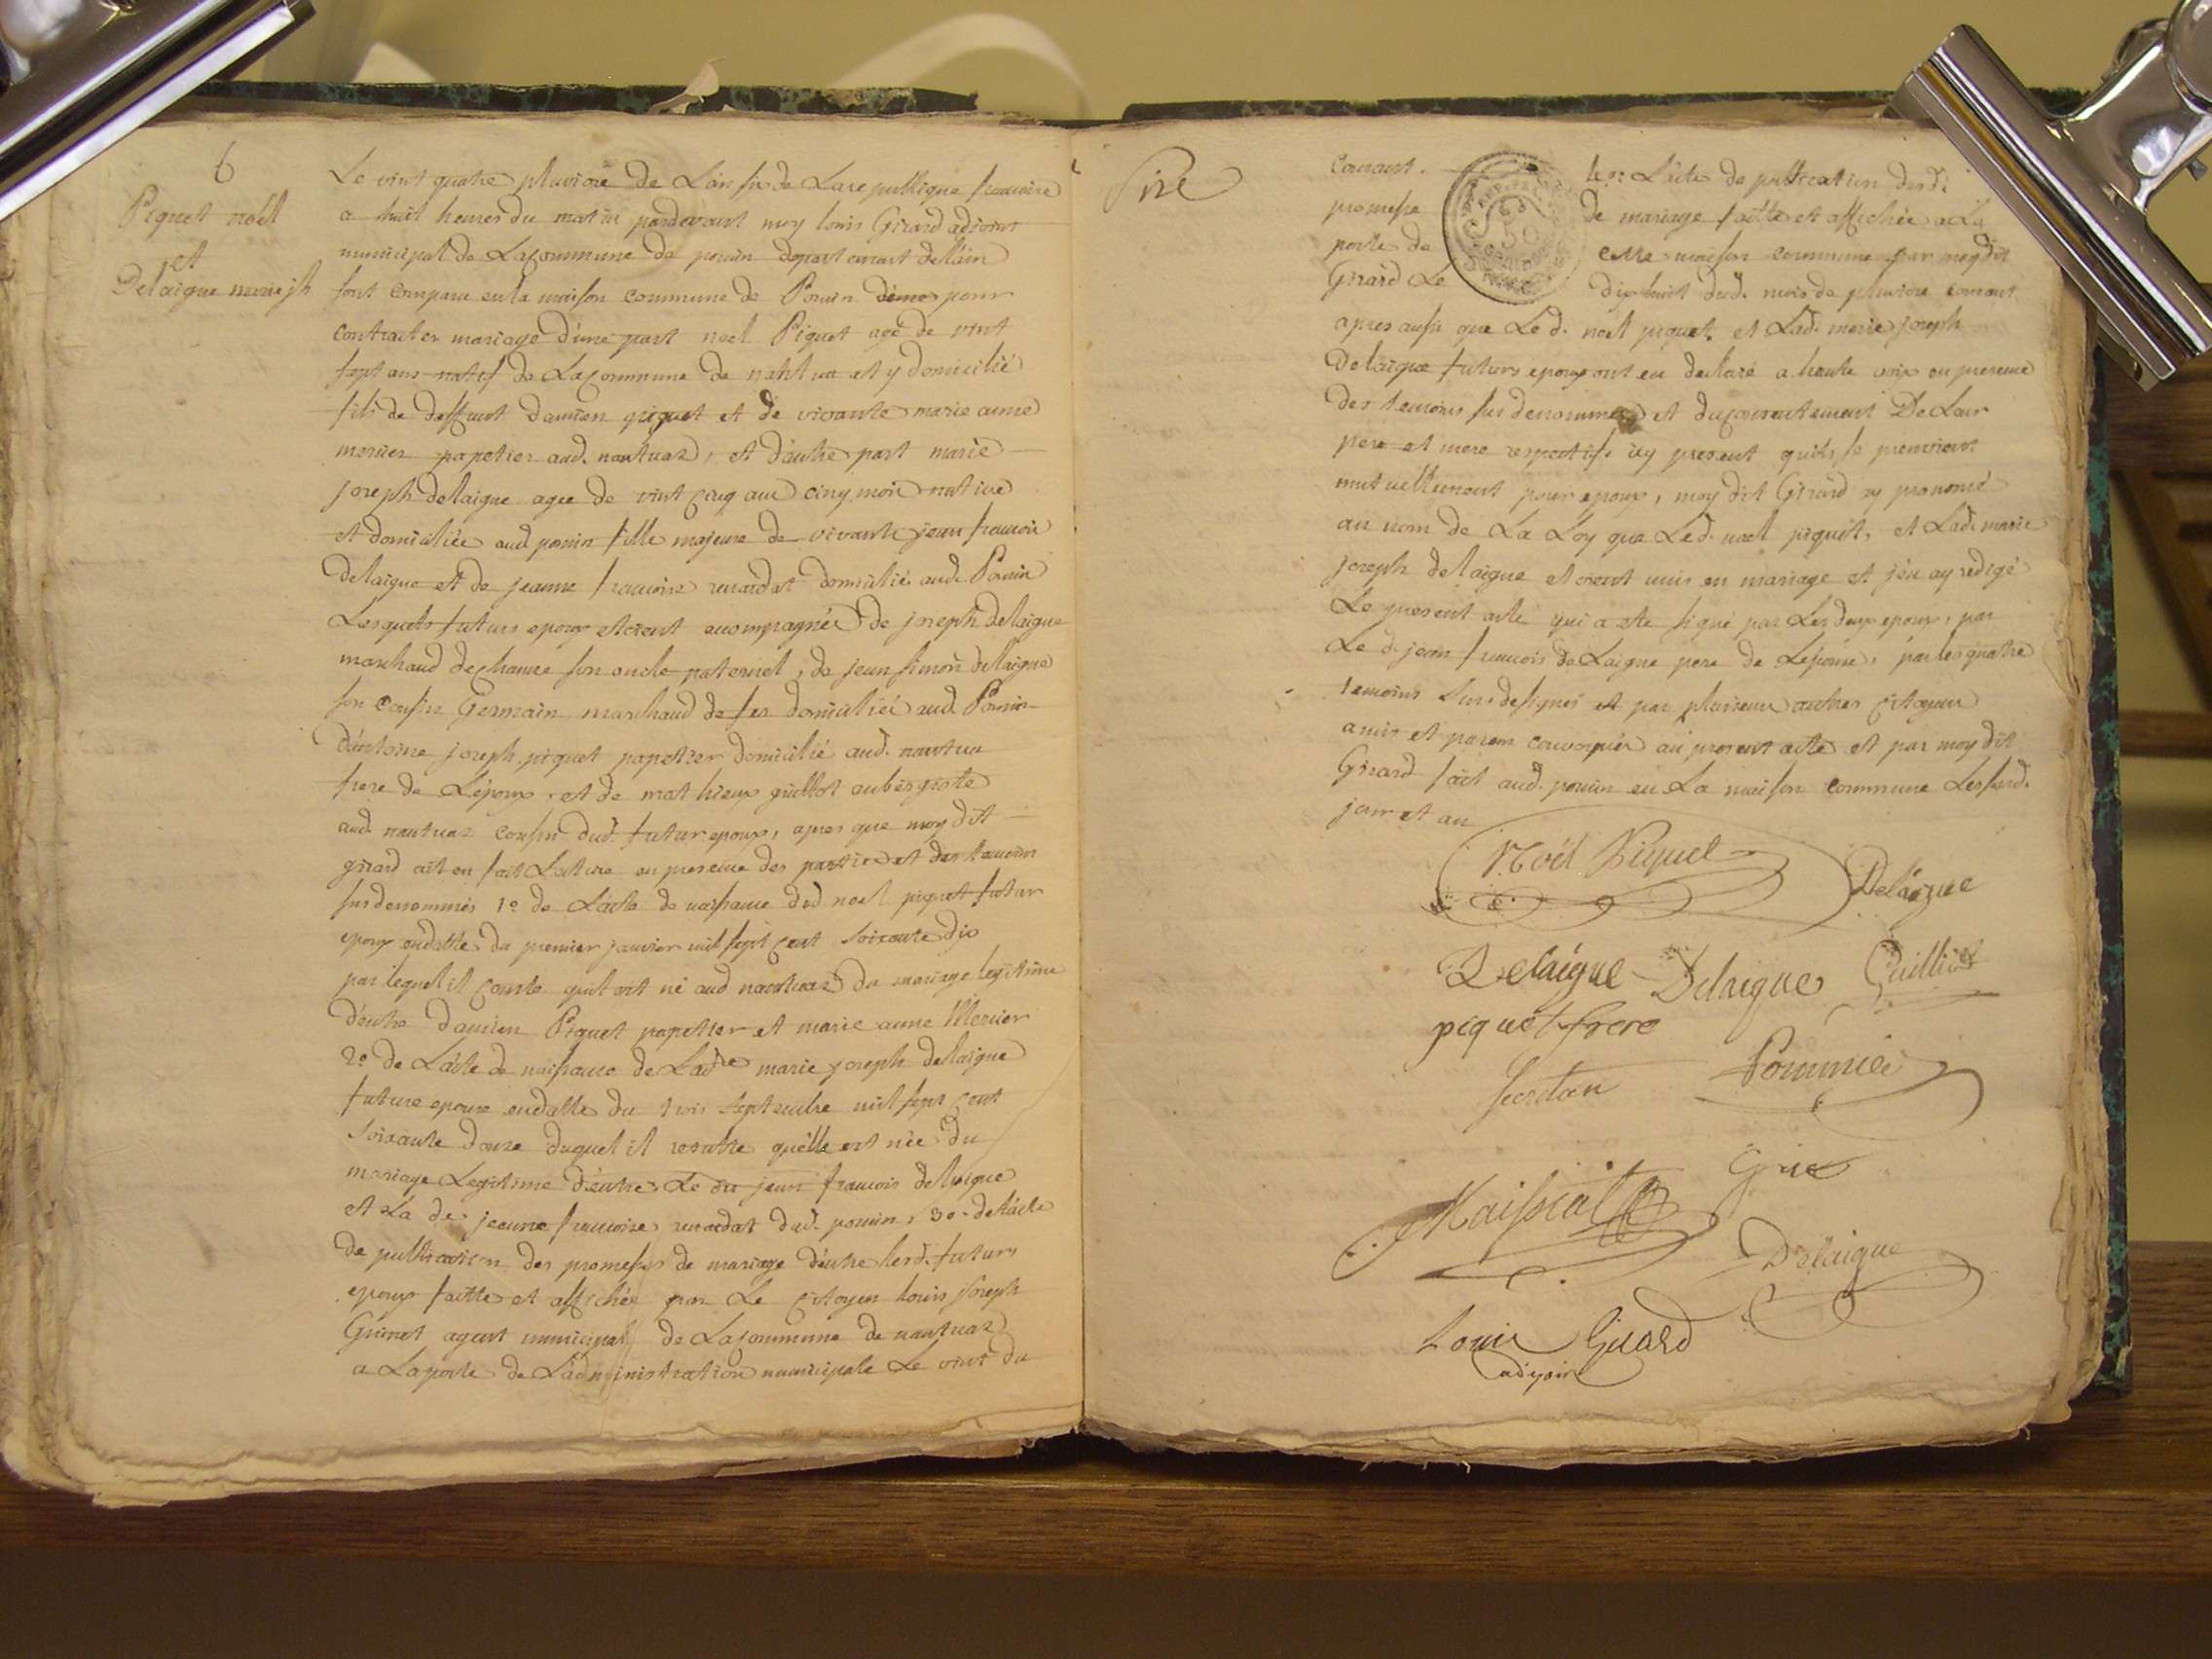 6
Piquet noël
et
Delaigue marie jh
Le vint quatre pluviose de L'an six de La republique francoise
a huit heures du matin pardevant moy louis Girard adjoint
municipal de La commune de poncin departement de L'ain
sont comparu en la maison commune de Poncin pour
contracter mariage d'une part noel Piquet age de vint
sept ans natif de La commune de nantua et y domicilié
fils de deffunt damien piquet et de vivante marie anne
mercier papetier aud. nantuaz, et d'autre part marie
joseph delaigue agee de vint cinq ans cinq mois native
et domiciliée aud poncin fille majeure de vivants jean francois
delaigue et de jeanne francoise domicilié aud. Poncin
Lesquels futurs epoux etoient accompagnés de joseph delaigue
marchand de chanvre son oncle paternel, de jean simon delaigue
son cousin Germain marchand de fer domiciliés aud. Poncin
d'antoine joseph piquet papetier domicilié aud. nantua
frere de L'epoux et de mathieux guillot aubergiste
aud. nantuaz cousin dud. futur epoux, apres que moy dit
girard ait eu fait Lecture en presence des parties et des temoins
sus denommés 1o. de L'acte de naissance dud noel piquet futur
epoux en datte du premier janvier mil sept cent soixante dix
par lequel il conste quil est né aud nantuaz du mariage legitime
d'entre damien Piquet papetier et marie anne Mercier
2o. de L'acte de naissance de Ladte marie joseph delaigue
future epouse en datte du trois septembre mil sept cent
soixante douze duquel il resulte quelle est née du
mariage Legitime d'entre Le dit jean francois delaigue
et La de. jeanne francoise dud. poncin, 3o. de L'acte
de publication des promesses de mariage d'entre lesd. futurs
epoux faitte et affichée par Le citoyen louis joseph
agent municipal de La commune de nantuaz
a La porte de L'administration municipale Le vint du
courant. L'acte de publication desd.
promesse de mariage faitte et affichée a La
porte de cette maison commune par moy dit
Girard Le dix huit dud. mois de pluviose courant
apres aussi que Led. noel piquet, et Lad. marie joseph
Delaigue futurs epoux ont eu declaré a haute voix en presence
des temoins sus denommés et du consentement De Leur
pere et mere respectifs icy present quils se prenoient
mutuellement pour epoux, moy dit Girard ay prononcé
au nom de La Loy que Led. noel piquet, et Lad. marie
joseph delaigue etoient unis en mariage et j'en ay redigé
Le present acte qui a ete signé par Les deux epoux, par
Le d. jean francois deLaigue pere de Lepouse, par les quatre
temoins sus designés et par plusieurs autres citoyens
amis et parens convoqués au present acte et par moy dit
Girard fait aud. poncin en La maison commune Les susd.
jour et an
Noël Piquet
Delaigue
Delaigue Delaigue Guilliot
piquet frere
Pommier
Maissiat
Delaigue
Louis Girard
adjoin